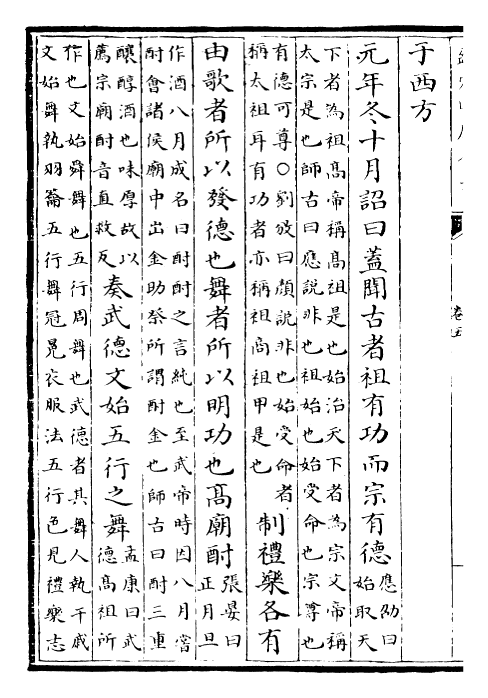 于西方
元年冬十月詔曰蓋聞古者祖有功而宗有德
應劭曰
始取天
下者為祖髙帝稱髙祖是也始治天下者為宗文帝稱
太宗是也師古曰應説非也祖始也始受命也宗尊也
有德可尊○劉攽曰顔説非也始受命者
稱太祖耳有功者亦稱祖商祖甲是也
制禮樂各有
由歌者所以發德也舞者所以明功也髙廟酎
張晏曰
正月旦
作酒八月成名曰酎酎之言純也至武帝時因八月嘗
酎會諸侯廟中出金助祭所謂酎金也師古曰酎三重
釀醇酒也味厚故以
薦宗廟酎音直救反
奏武德文始五行之舞
孟康曰武
德髙祖所
作也文始舜舞也五行周舞也武德者其舞人執干戚
文始舞執羽籥五行舞冠冕衣服法五行色見禮樂志